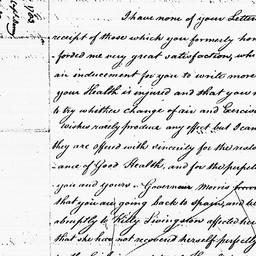 I have none of your Letter
receipt of those which you formerly hon
forded me very great satisfaction, whe
an inducement for you to write more
your Health is injured and that you
to try whither change of air and Exercise
wishes rarely produce any effect but I can
they are offered with sincerity for the resto
ance of Good Health, and for the perfect
you and yours – Governeur Morris
that you are going back to Spain, and be
abruptly to Kitty Livingston affected her
that she has not recovered herself perfectly